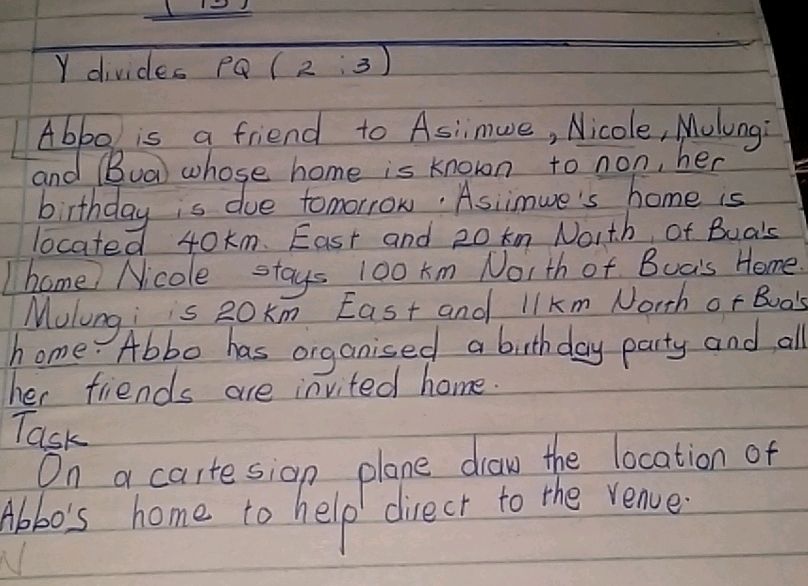 Y divides PQ ( 2 : 3 )
Abbo is a friend to Asiimwe, Nicole, Mulungi
and Bua whose home is known to non, her
birthday is due tomorrow. Asiimwe's home is
located 40km East and 20 km North of Bua's
home Nicole stays 100 km North of Bua's Home.
Mulungi is 20km East and 11km North of Bua's
home. Abbo has organised a buthday party and all
her friends are invited home.
Task
On a cartesian plane draw the location of
Abbo's home to help direct to the venue.